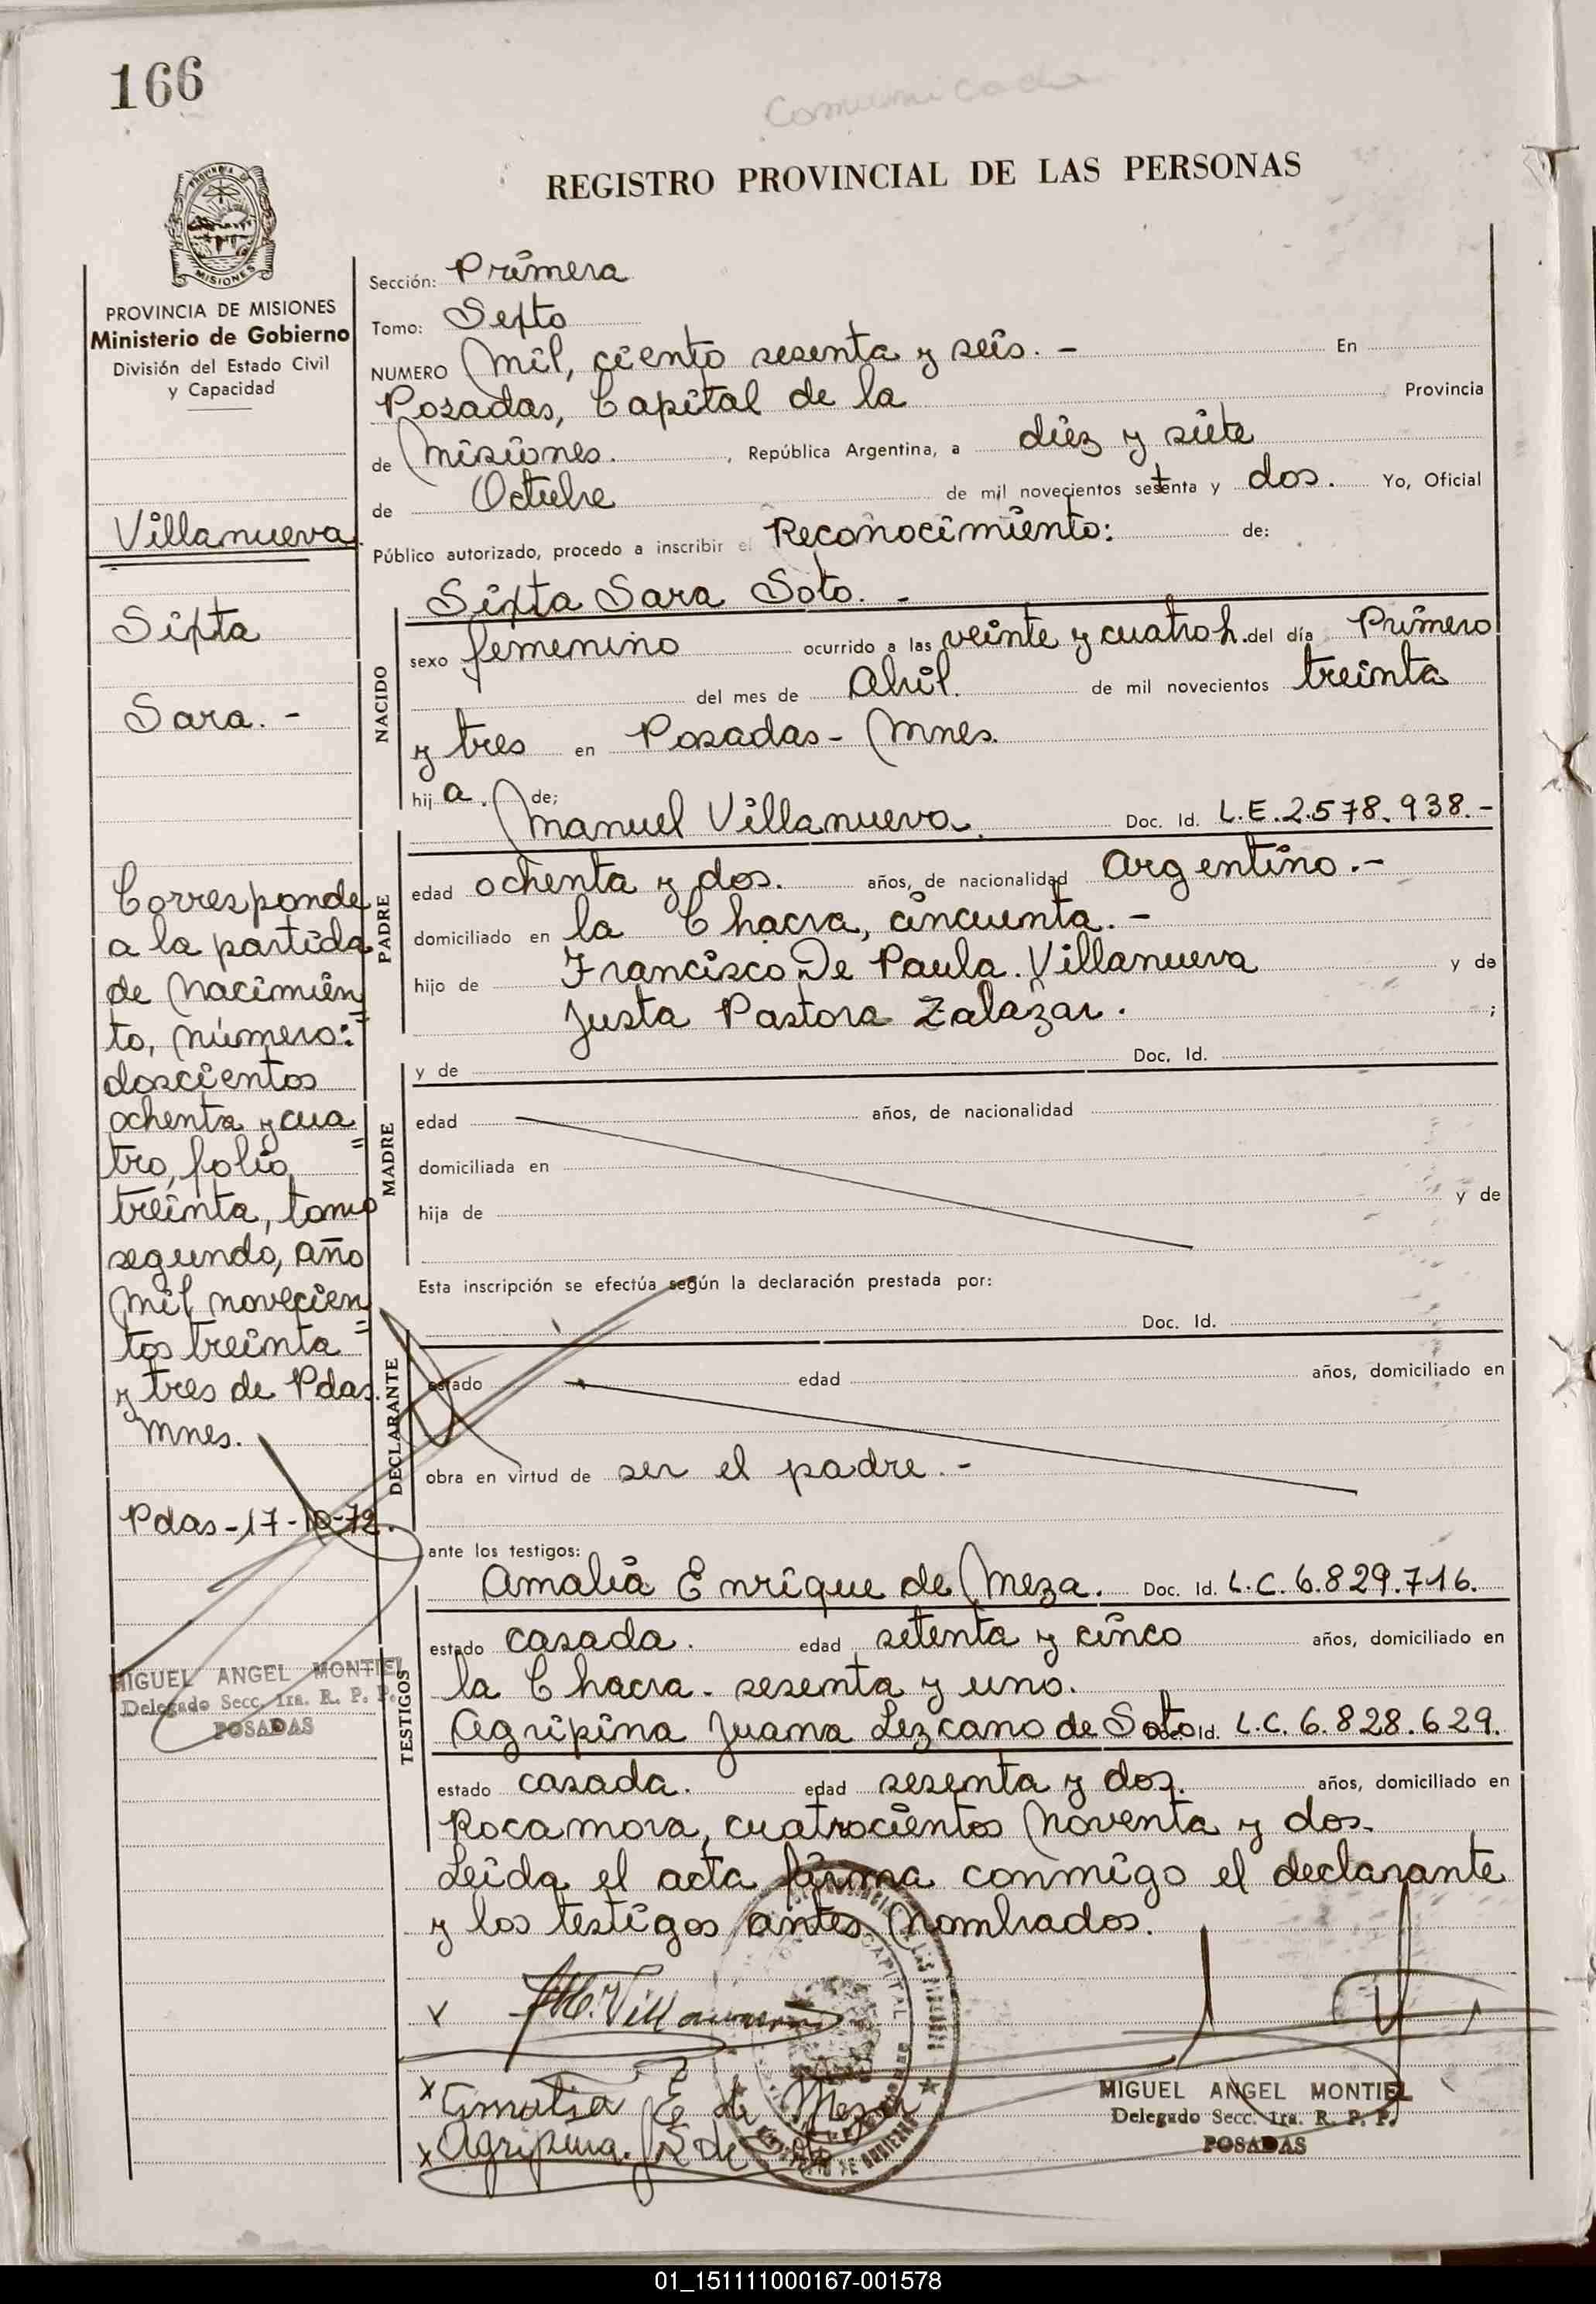 166
Comunicada
REGISTRO PROVINCIAL DE LAS PERSONAS
PROVINCIA DE MISIONES
Ministerio de Gobierno
División del Estado Civil
y Capacidad
Villanueva
Sixta
Sara. -
Corresponde
a la partida
de Nacimien
to, número:=
doscientos
ochenta y cua
tro, folio =
treinta, tomo
segundo, año
mil novecien
tos treinta =
y tres de Pdas.
Mnes.
Pdas-17-10-72.
MIGUEL ANGEL MONTIEL
Delegado Secc. 1ra. R. P. P.
POSADAS
Sección: Primera
Tomo: Sexto
NUMERO Mil, ciento sesenta y seis. - En
Posadas, Capital de la Provincia
de Misiones. , República Argentina, a diez y siete
de Octubre de mil novecientos setenta y dos. Yo, Oficial
Público autorizado, procedo a inscribir el Reconocimiento: de:
Sixta Sara Soto. -
NACIDO
sexo femenino ocurrido a las veinte y cuatro h. del día Primero
del mes de Abril. de mil novecientos treinta
y tres en Posadas - Mnes.
hij a. de;
Manuel Villanueva. Doc. Id. L.E.2.578.938.-
PADRE
edad ochenta y dos. años, de nacionalidad Argentino.-
domiciliado en la Chacra, cincuenta.-
hijo de Francisco De Paula Villanueva y de
Justa Pastora Zalazar. ;
y de Doc. Id.
MADRE
edad años, de nacionalidad
domiciliada en
hija de y de
Esta inscripción se efectúa según la declaración prestada por:
Doc. Id.
DECLARANTE
estado edad años, domiciliado en
obra en virtud de ser el padre.-
ante los testigos:
Amalia Enrique de Meza. Doc. Id. L.C.6.829.716.
TESTIGOS
estado casada. edad setenta y cinco años, domiciliado en
la Chacra - sesenta y uno.
Agripina Juana Lezcano de Soto Doc. Id. L.C. 6.828.629.
estado casada. edad sesenta y dos. años, domiciliado en
Rocamora, cuatrocientos noventa y dos.
Leida el acta firma conmigo el declarante
y los testigos antes nombrados.
x M. Villanueva
x Amalia E de Meza
x Agripina L de
MIGUEL ANGEL MONTIEL
Delegado Secc. 1ra. R. P. P.
POSADAS
01_151111000167-001578